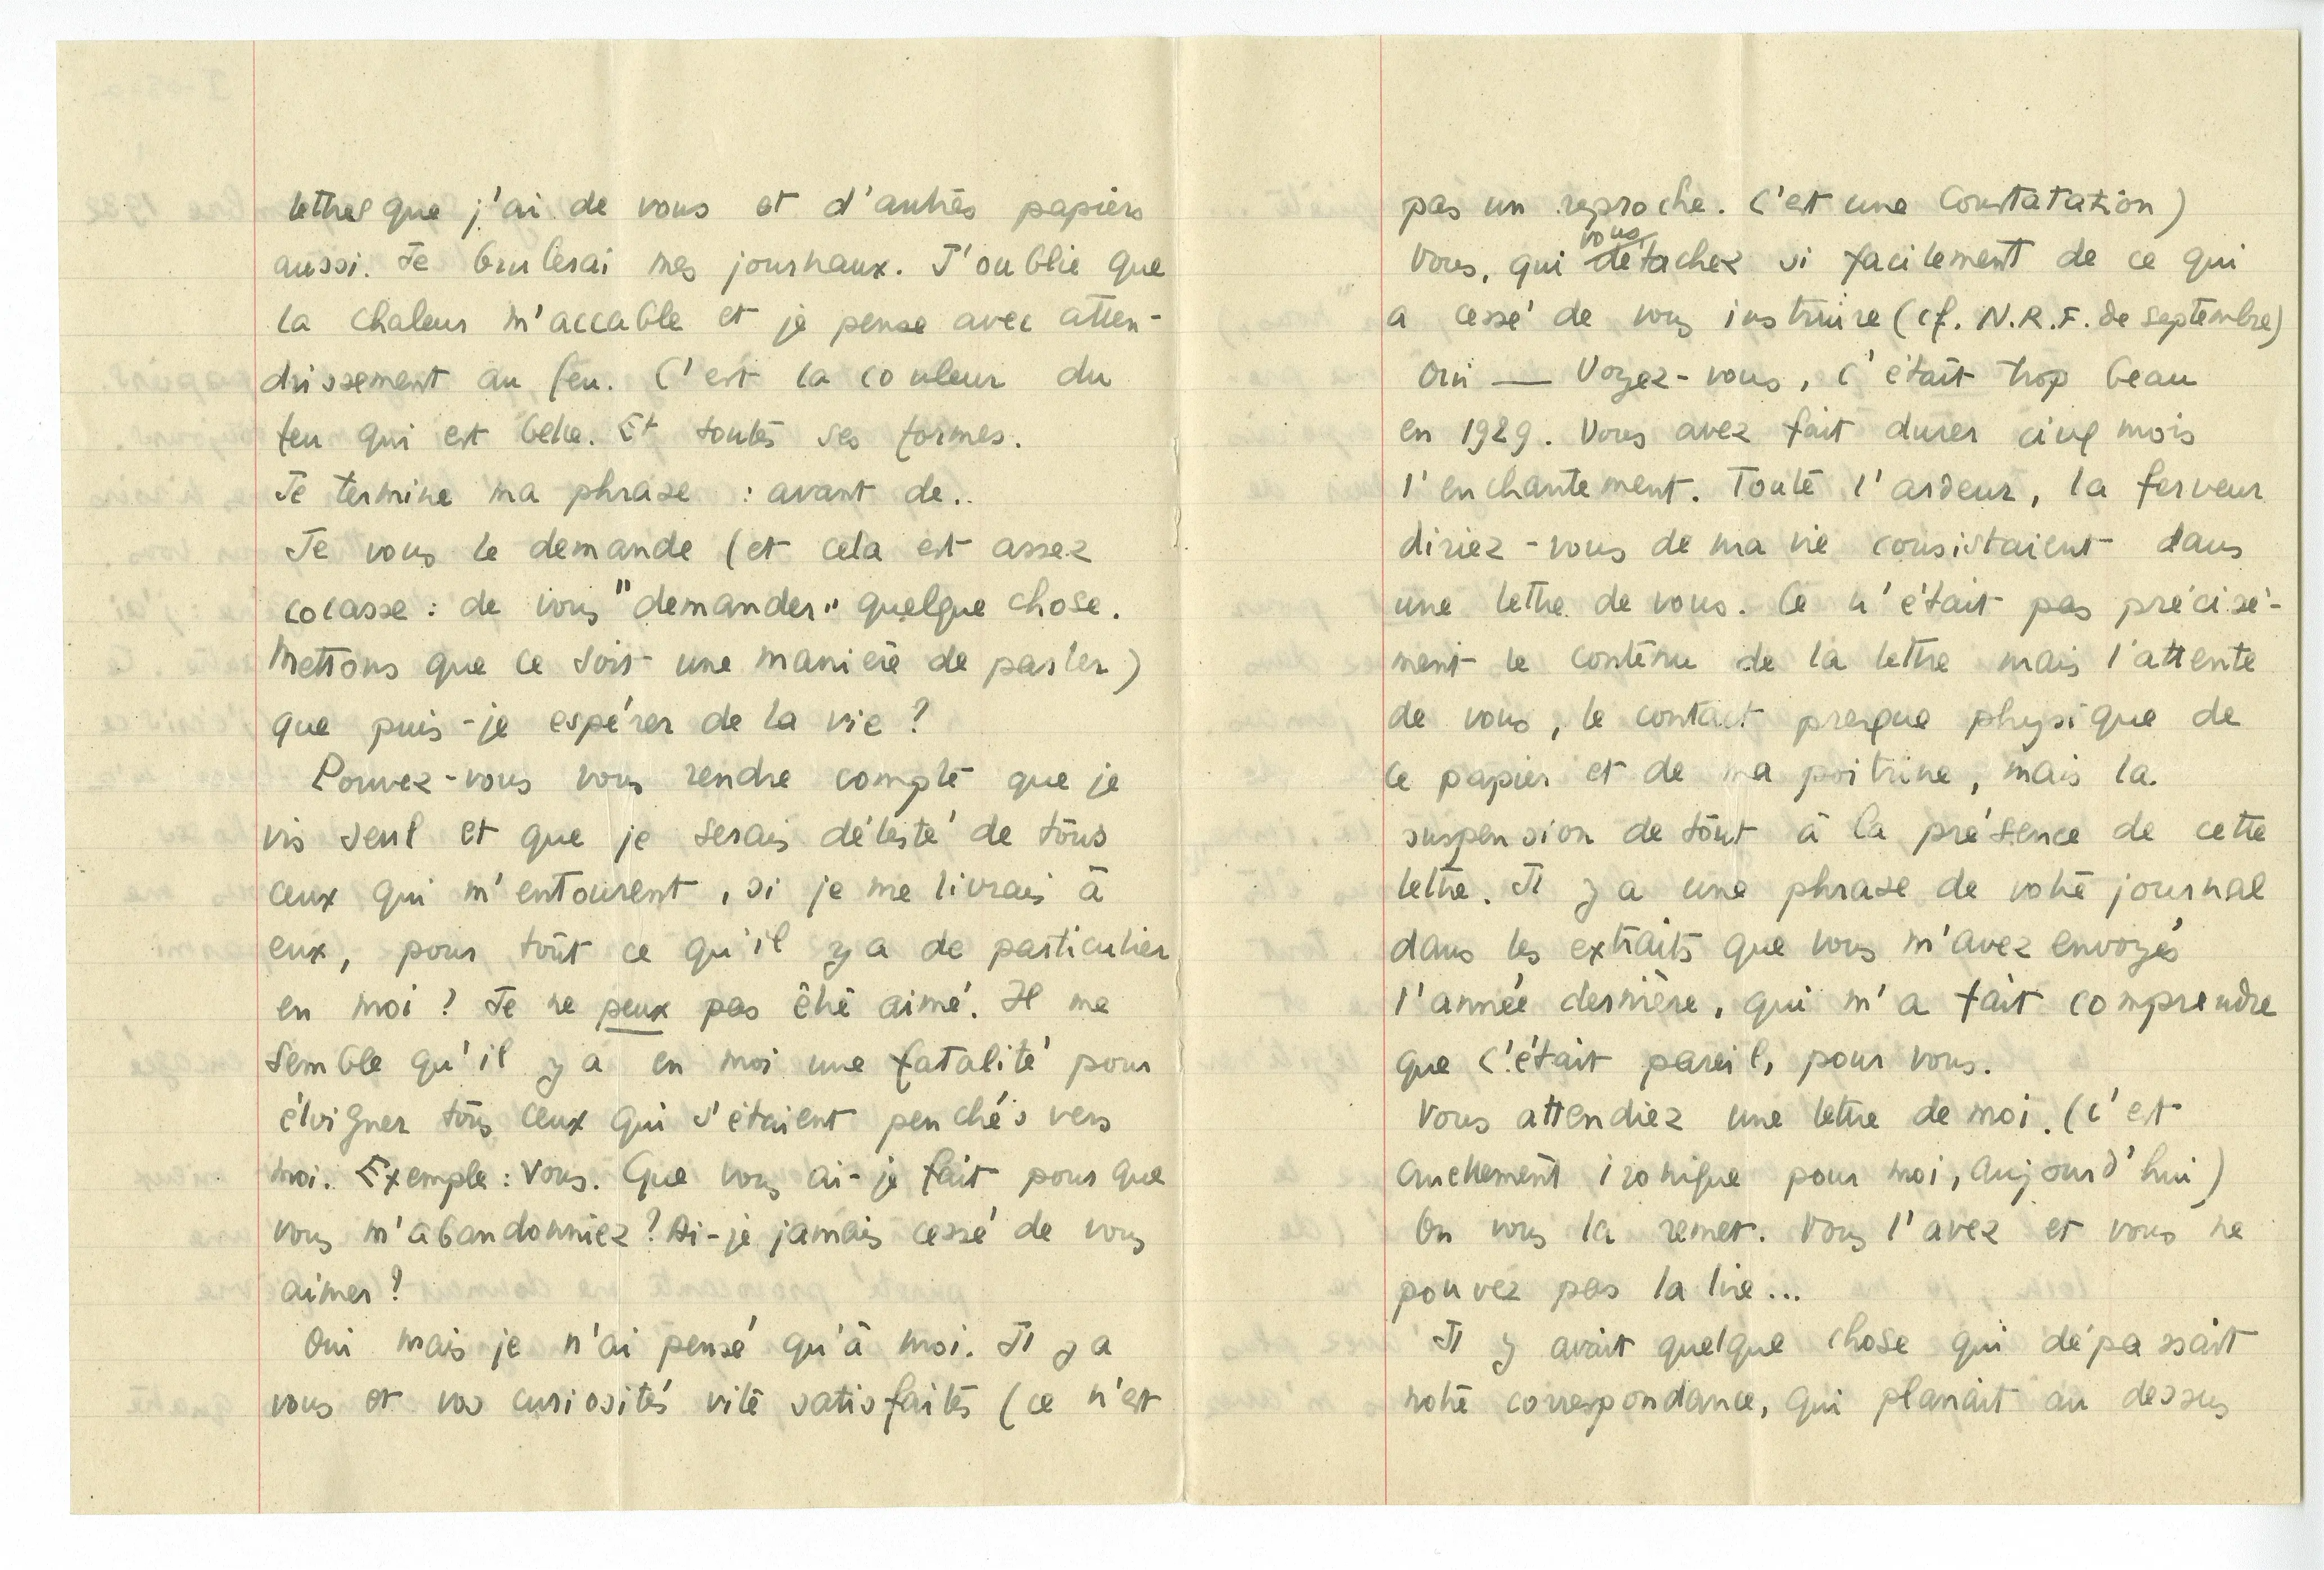 lettres que j'ai de vous et d'autres papiers
aussi. Je brulerai mes journaux. J'oublie que
la chaleur m'accable et je pense avec atten-
drissement au feu. C'est la couleur du
feu qui est belle. Et toutes ses formes.
Je termine ma phrase : avant de..
Je vous le demande (et cela est assez
cocasse : de vous "demander" quelque chose.
Mettons que ce soit une manière de parler)
que puis-je espérer de la vie ?
Pouvez-vous vous rendre compte que je
vis seul et que je serais détesté de tous
ceux qui m'entourent, si je me livrais à
eux, pour tout ce qu'il y a de particulier
en moi ? Je ne peux pas être aimé. Il me
semble qu'il y a en moi une fatalité pour
éloigner tous ceux qui s'étaient penchés vers
moi. Exemple : Vous. Que vous ai-je fait pour que
vous m'abandonniez ? Ai-je jamais cessé de vous
aimer ?
Oui mais je n'ai pensé qu'à moi. Il y a
vous et vos curiosités vite satisfaites (ce n'est
pas un reproche. C'est une Constatation)
vous
Vous, qui détachez si facilement de ce qui
a cessé de vous instruire (cf. N.R.F. de septembre)
Oui — Voyez-vous, c'était trop beau
en 1929. Vous avez fait durer cinq mois
l'enchantement. Toute l'ardeur, la ferveur
diriez-vous de ma vie consistaient dans
une lettre de vous. Ce n'était pas précisé-
ment le contenu de la lettre mais l'attente
de vous, le contact presque physique de
ce papier et de ma poitrine, mais la
suspension de tout à la présence de cette
lettre. Il y a une phrase de votre journal
dans les extraits que vous m'avez envoyés
l'année dernière, qui m'a fait comprendre
que c'était pareil, pour vous.
Vous attendiez une lettre de moi. (c'est
cruellement ironique pour moi, aujourd'hui)
On vous la remet. Vous l'avez et vous ne
pouvez pas la lire...
Il y avait quelque chose qui dépassait
notre correspondance, qui planait au dessus